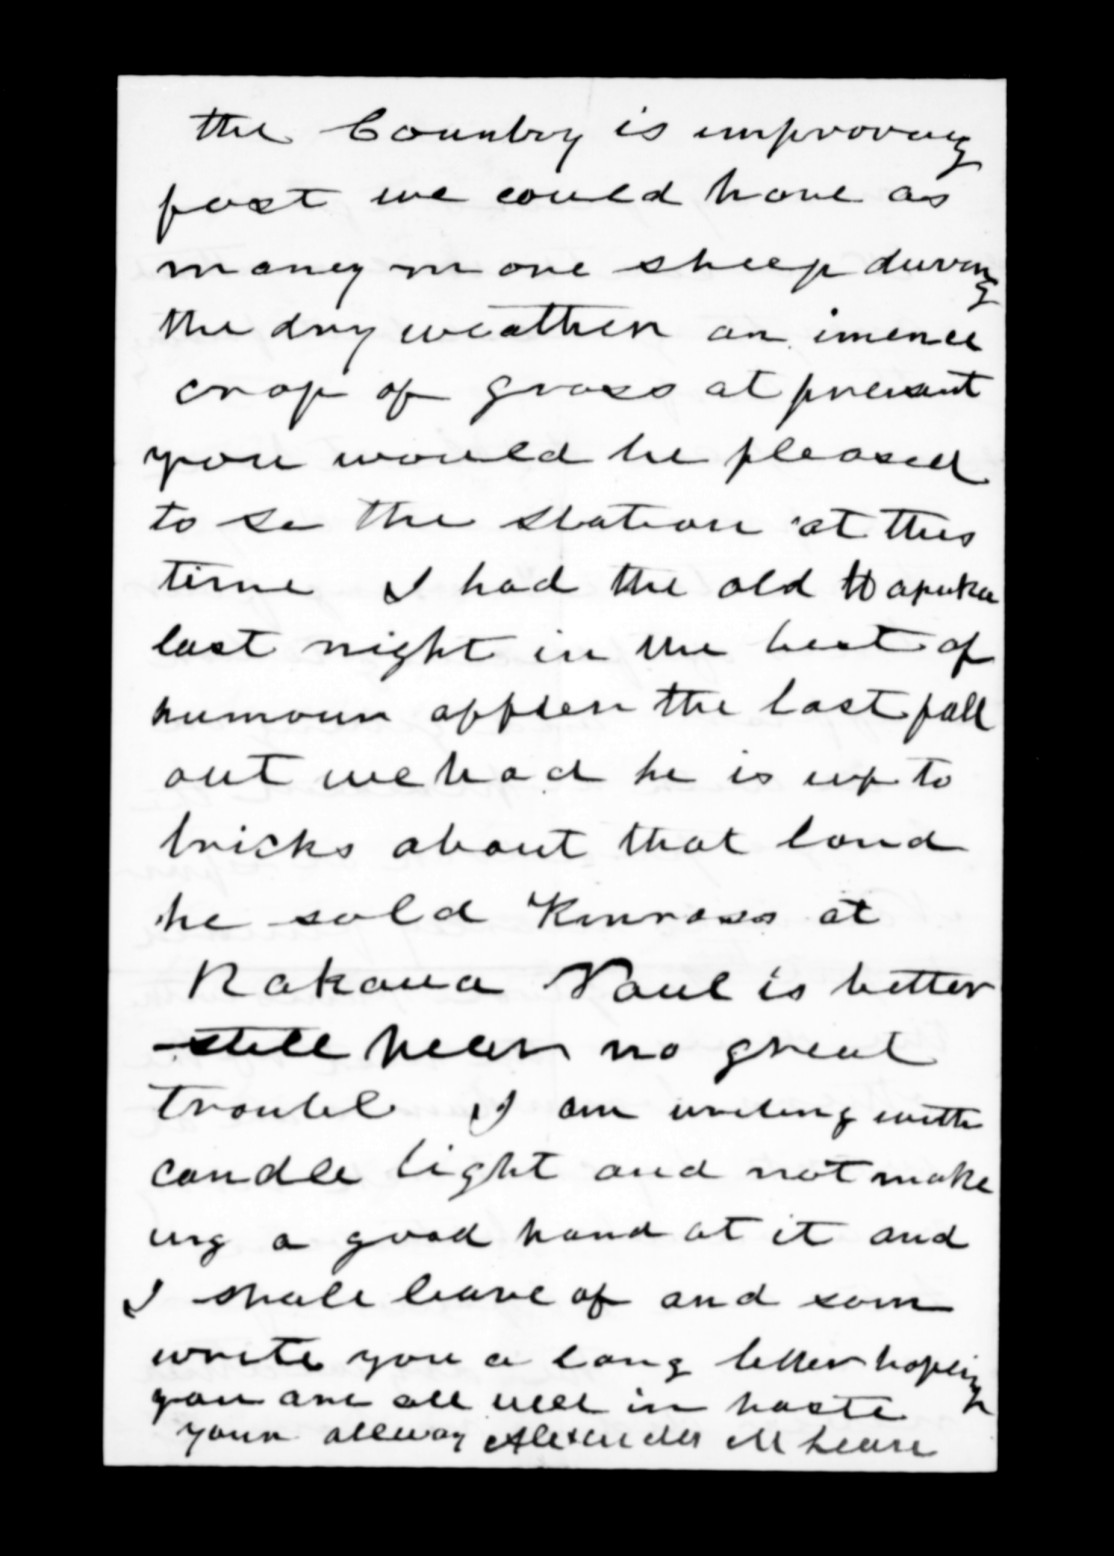 the Country is improving
fast we could have as
maney more sheep during
the dry weather an imence
crop of grass at presant
you would be pleased
to se the station at this
time I had the old Hapuka
last night in the best of
humour affter the last fall
out we had he is up to
bricks about that land
he sold Kinross at
Rakaua Paul is better
still near no great
troubel I am writing with
candle light and not make
ing a good hand at it and
I shall leave of and som
write you a long letter hoping
you are all well in haste
your allway Alexander McLean